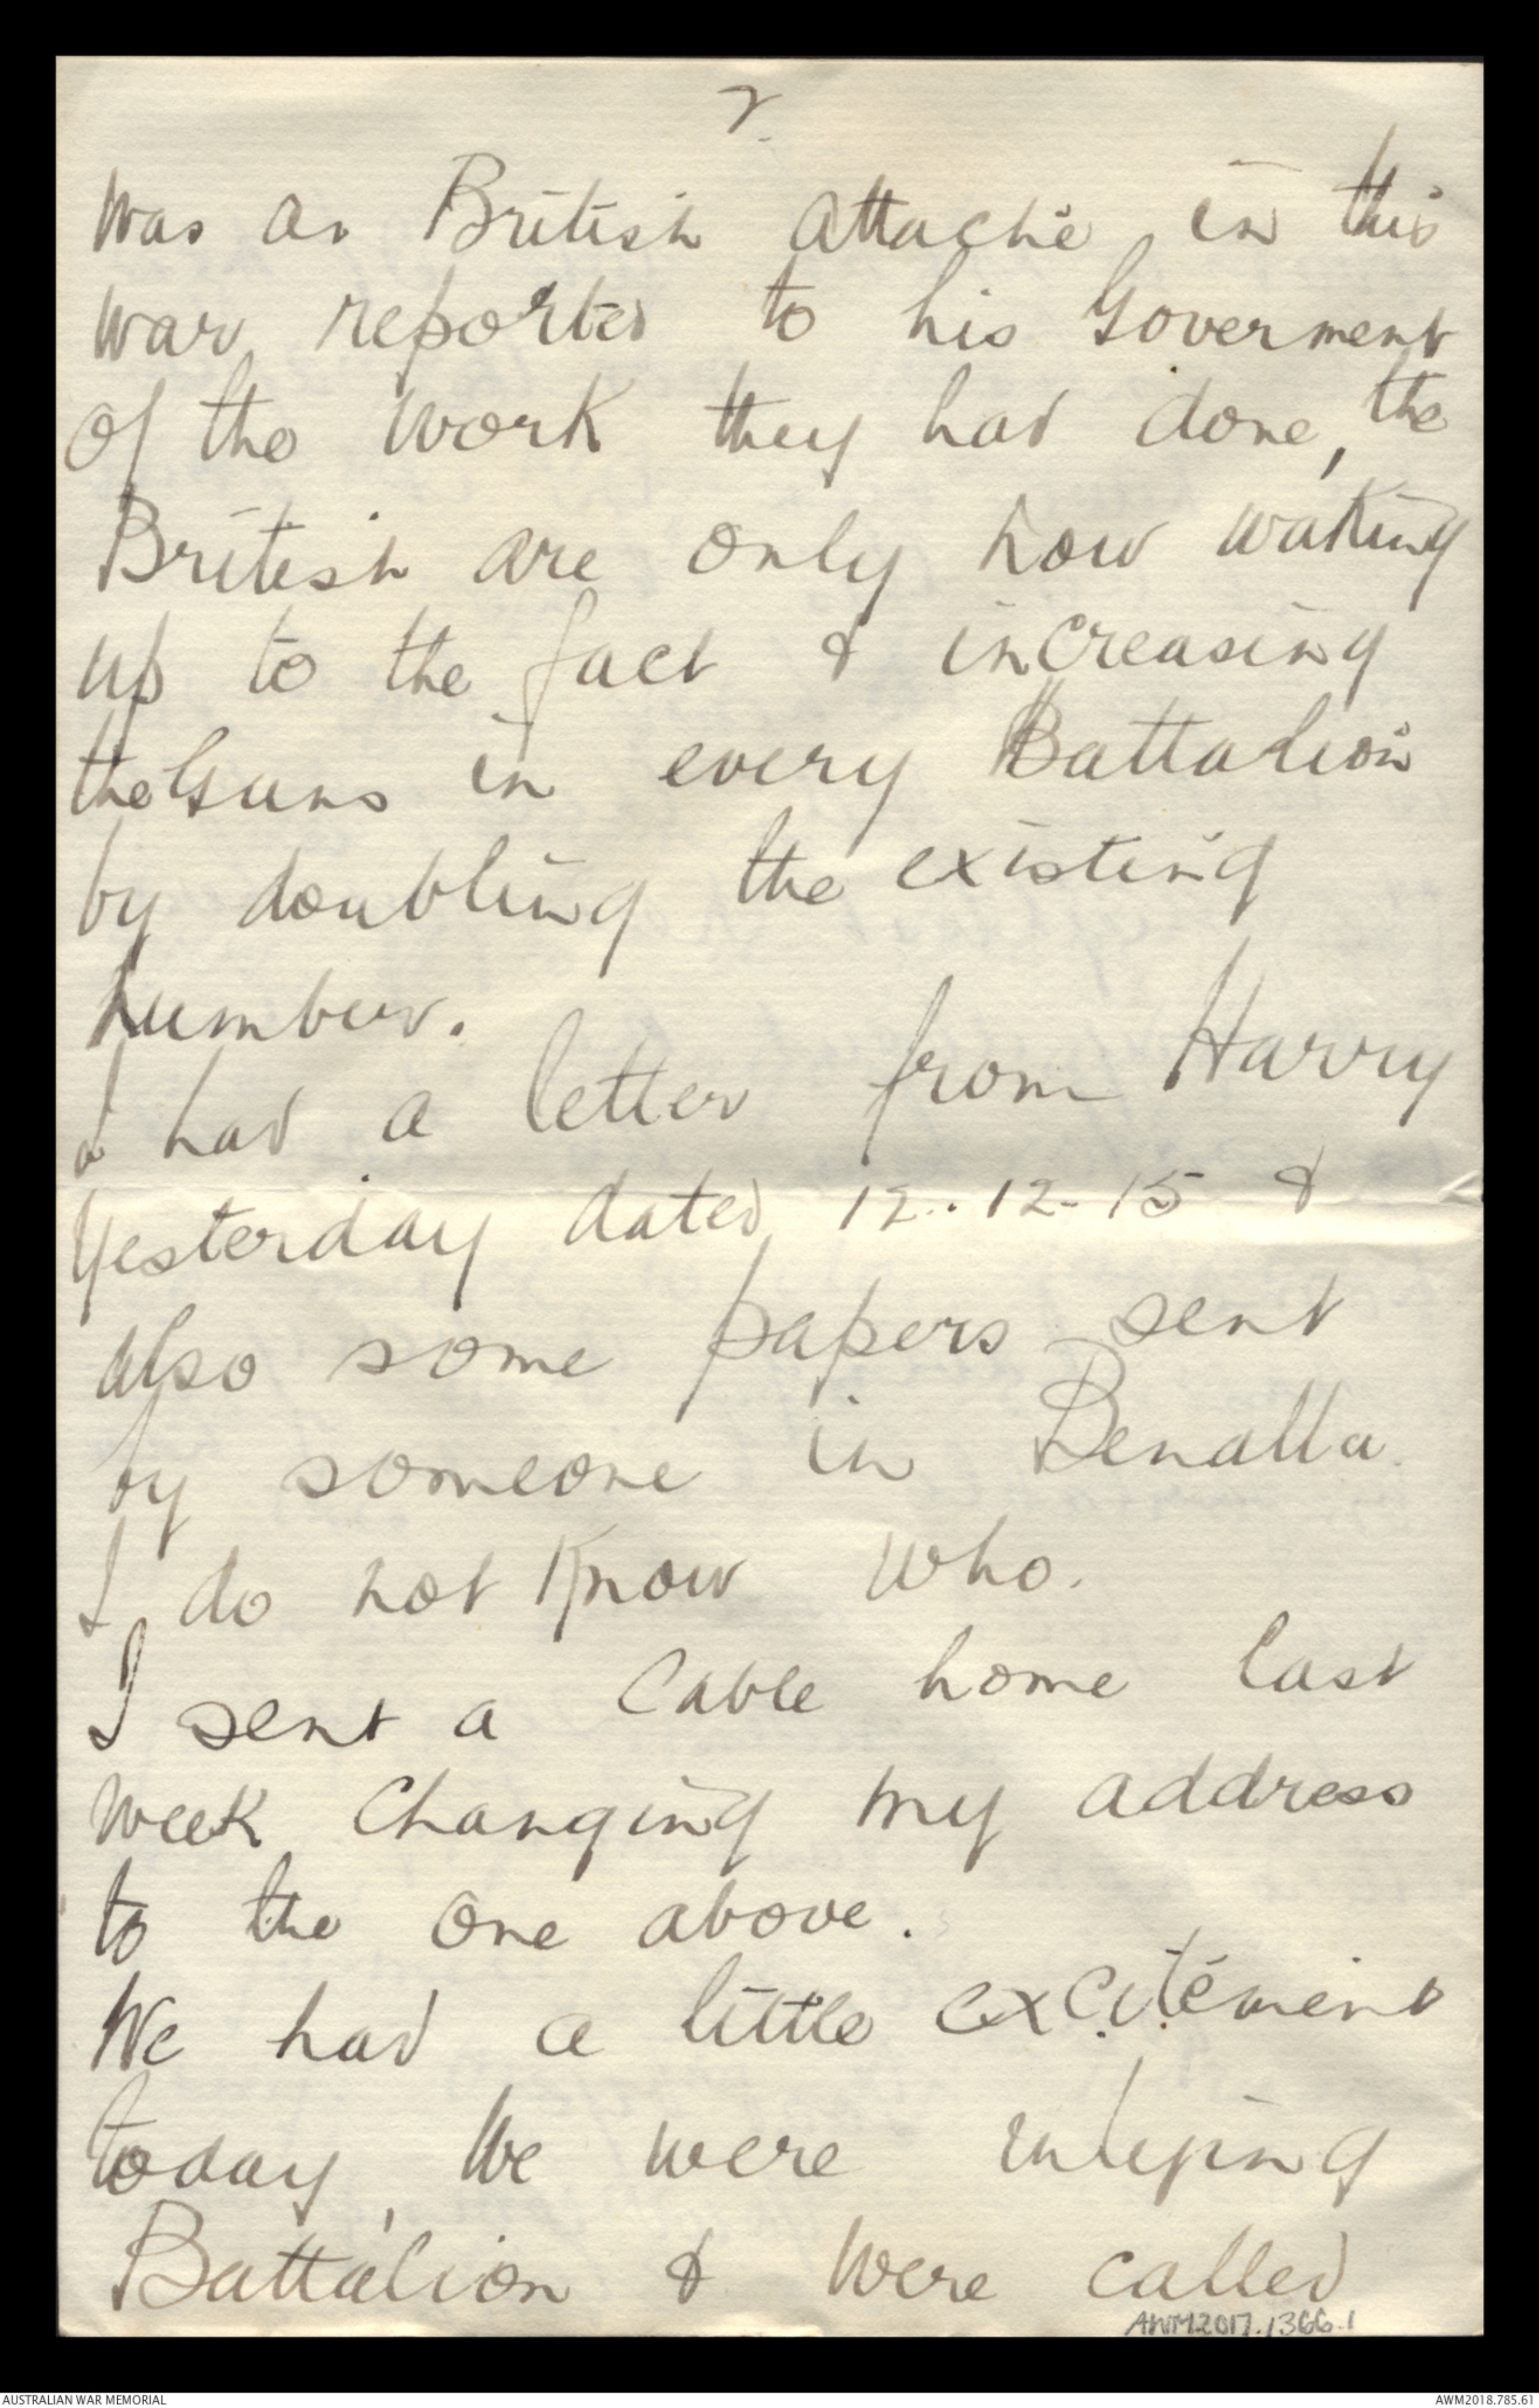 2.
was as British attaché in this
war reported to his Goverment
of the work they had done, the
British are only now waking
up to the fact & increasing
the Guns in every Battalion
by doubling the existing
number.
I had a letter from Harry
yesterday dated 12.12-15 &
also some papers sent
by someone in Benalla.
I do not know who.
I sent a cable home last
week changing my address
to the one above.
We had a little excitement
today, We were inlying
Battalion & were called
AWM2017.1366.1
AUSTRALIAN WAR MEMORIAL
AWM2018.785.61